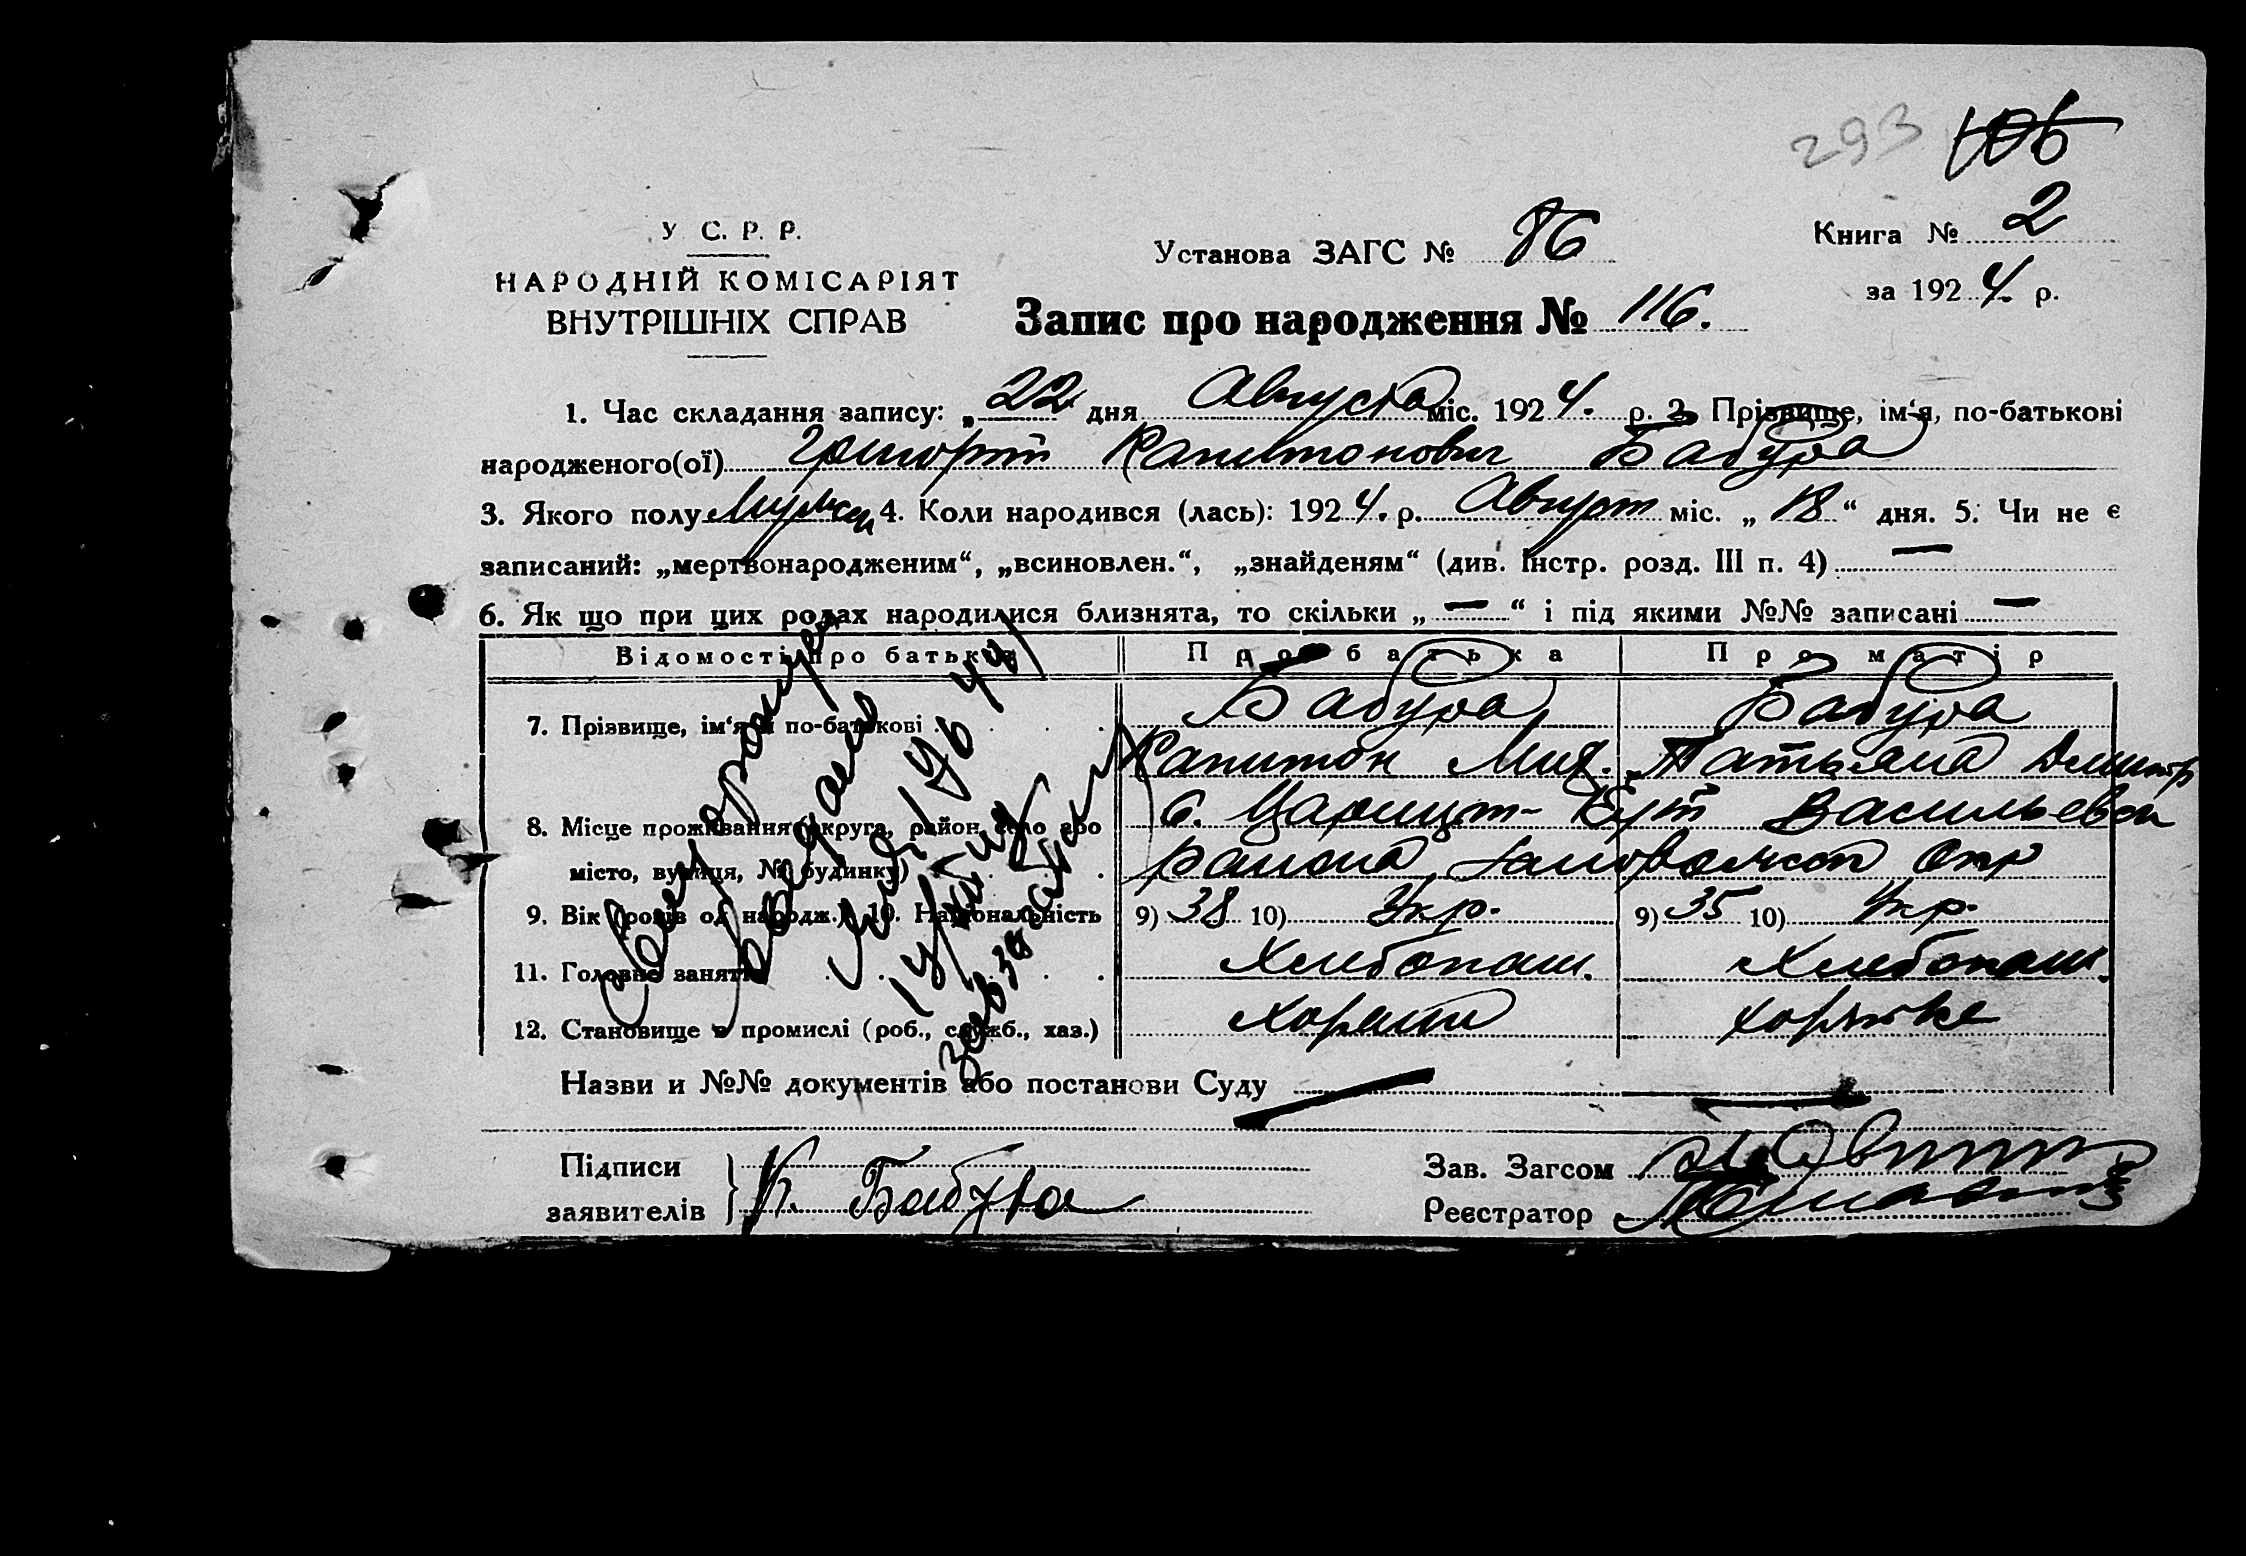 293 106
У. С. Р. Р.
НАРОДНІЙ КОМІСАРІЯТ
ВНУТРІШНІХ СПРАВ
Установа ЗАГС № 86
Книга № 2
за 1924. р.
Запис про народження № 116.
1. Час складання запису: „22 дня Августа міс. 1924. р. 2. Прізвище, ім‘я, по-батькові
народженого(ої) Григорій Капитонович Бабура
3. Якого полу Мужск 4. Коли народився (лась): 1924. р. Август міс. „18“ дня. 5. Чи не є
записаний: „мертвонародженим“, „всиновлен.“, „знайденям“ (див. Інстр. розд. III п. 4) —
6. Як що при цих родах народилися близнята, то скільки „—“ і під якими №№ записані —
Відомості про батьків Про батька Про матір
7. Прізвище, ім‘я й по-батькові Бабура Бабура
Капитон Мих. Татьяна Дмитр
8. Місце проживання (округа, район, село або с. Царицын-Кут Васильевск
місто, вулиця, № будинку) района
9. Вік (років од народж.) 10. Національність 9) 38 10) Укр. 9) 35 10) Укр.
11. Головне заняття Хлебопаш. Хлебопаш.
12. Становище в промислі (роб., служб., хаз.) Хозяин хозяйке
Назви и №№ документів або постанови Суду —
Підписи
заявителів К. Бабура
Зав. Загсом
Реєстратор